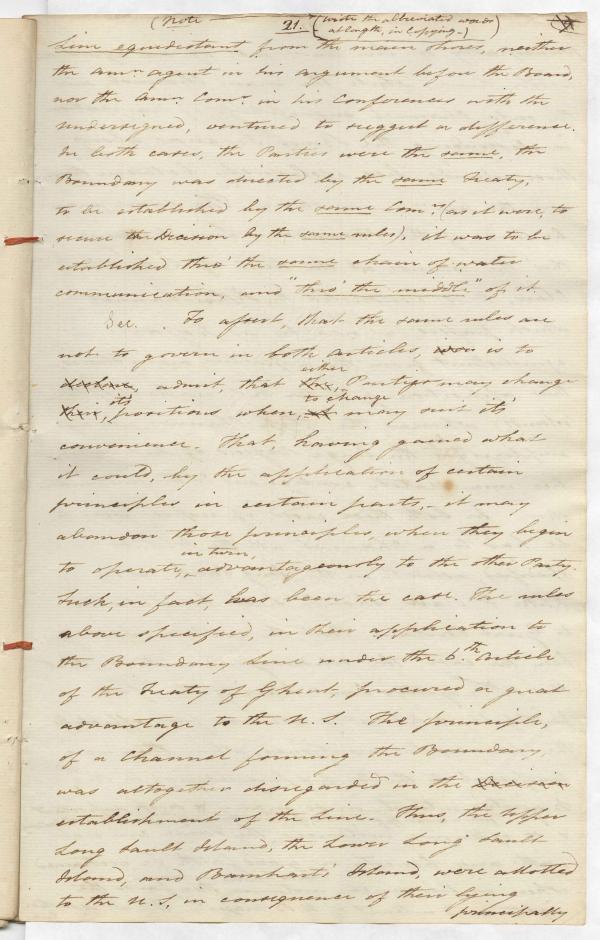 (Note — 21. (write the abbreviated words
at length, in Copying.)
Line equidistant from the main Shores, neither
the Amn. agent in his argument before the Board,
nor the Amn. Comr. in his Conferences with the
undersigned, ventured to suggest a difference.
In both cases, the Parties were the same, the
Boundary was directed by the same Treaty,
to be established by the same Comrs. (as it were, to
secure the Decision by the same rules). it was to be
established thro' the same chain of water
communication, and "thro' the middle" of it.
Sec. To assert, that the same rules are
not to govern in both articles, is to
admit, that either Party may change
its positions when, to change may suit its'
convenience. That, having gained what
it could, by the application of certain
principles in certain parts, it may
abandon those principles, when they begin
to operate, in turn, advantageously to the other Party.
Such, in fact, has been the case. The rules
above specified, in their application to
the Boundary Line under the 6th. Article
of the Treaty of Ghent, procured a great
advantage to the U. S. The principle,
of a Channel forming the Boundary
was altogether disregarded in the Decision
establishment of the Line. Thus, the Upper
Long Sault Island, the Lower Long Sault
Island, and Barnhart's Island, were allotted
to the U. S. in consequence of their lying
principally